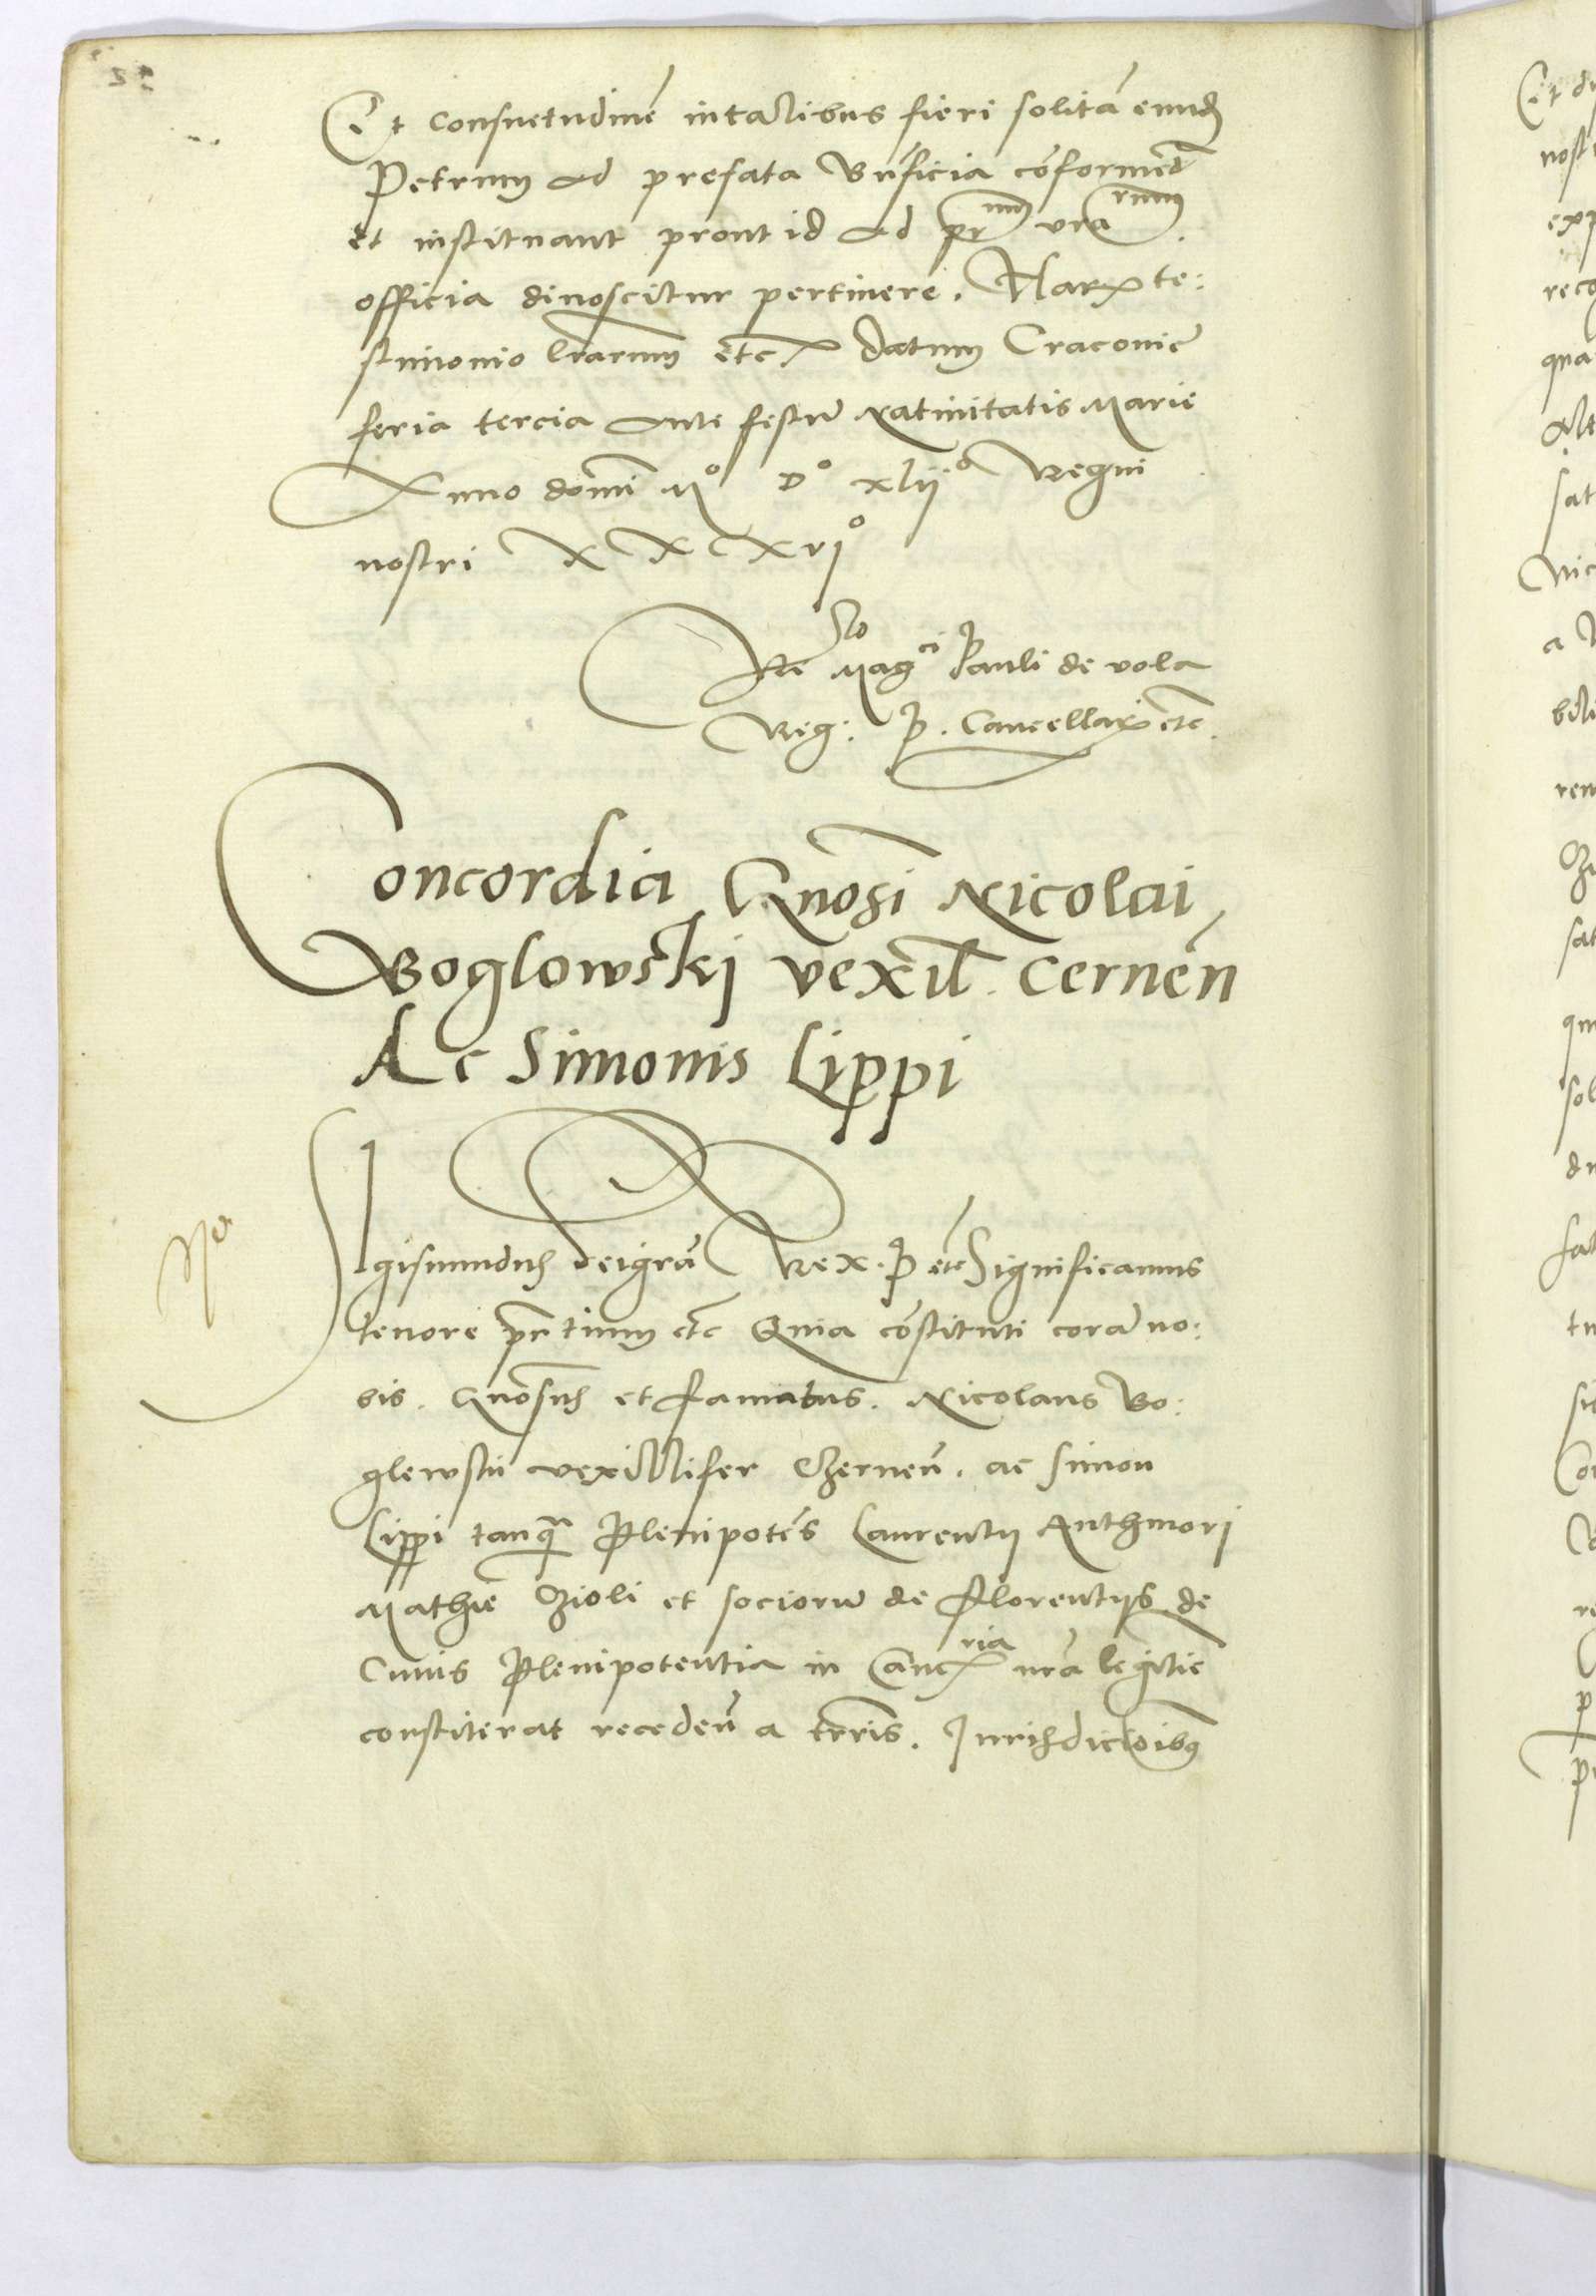 Et consuetudinē in talibus fieri solitā eundē
Petrum ad prefata Bn̄ficia cōfirmēt
et instituant prout id ad pr̄num vr̄arum
officia dinoscitur pertinere. Harꝝ te:
stimonio lr̄arum etc Datum Cracovie
feria tercia Ante festū Nativitatis Marie
Anno domī Mº Dº xlijº Regni
nostri XXXvjº
Rele Magci Pauli de vola
Reg: P. Cancellarij etc.
Concordia Gn̄osi Nicolai
Boglowskj vexil. Cernēn
Ac Simonis Lippi
Sigismundus dei grā Rex. P etc Significamus
tenore pn̄tium etc Quia cōstituti corā no:
bis. Gn̄osus et famatus. Nicolaus Bo:
glewskii vexillifer Czerneñ. ac Simon
Lippi tanqꝫ Plenipotēs Laurentij Anthinorj
Mathie Czioli et sociorū de Florentijs de
Cuius Plenipotentia in Cancria nr̄a legittie
constiterat recedeñ a terris. Jurisdictōibꝫ